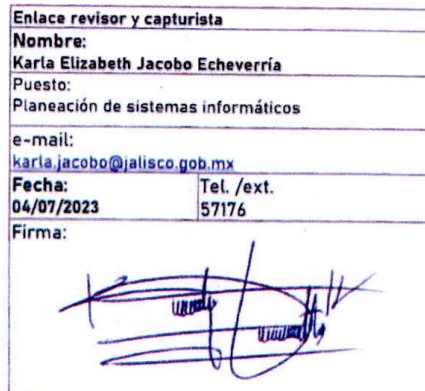 Enlace revisor y capturista
Nombre:
Karla Elizabeth Jacobo Echeverría
Puesto:
Planeación de sistemas informáticos
e-mail:
karla.jacobo@jalisco.gob.mx
Fecha: Tel. /ext.
04/07/2023 57176
Firma: